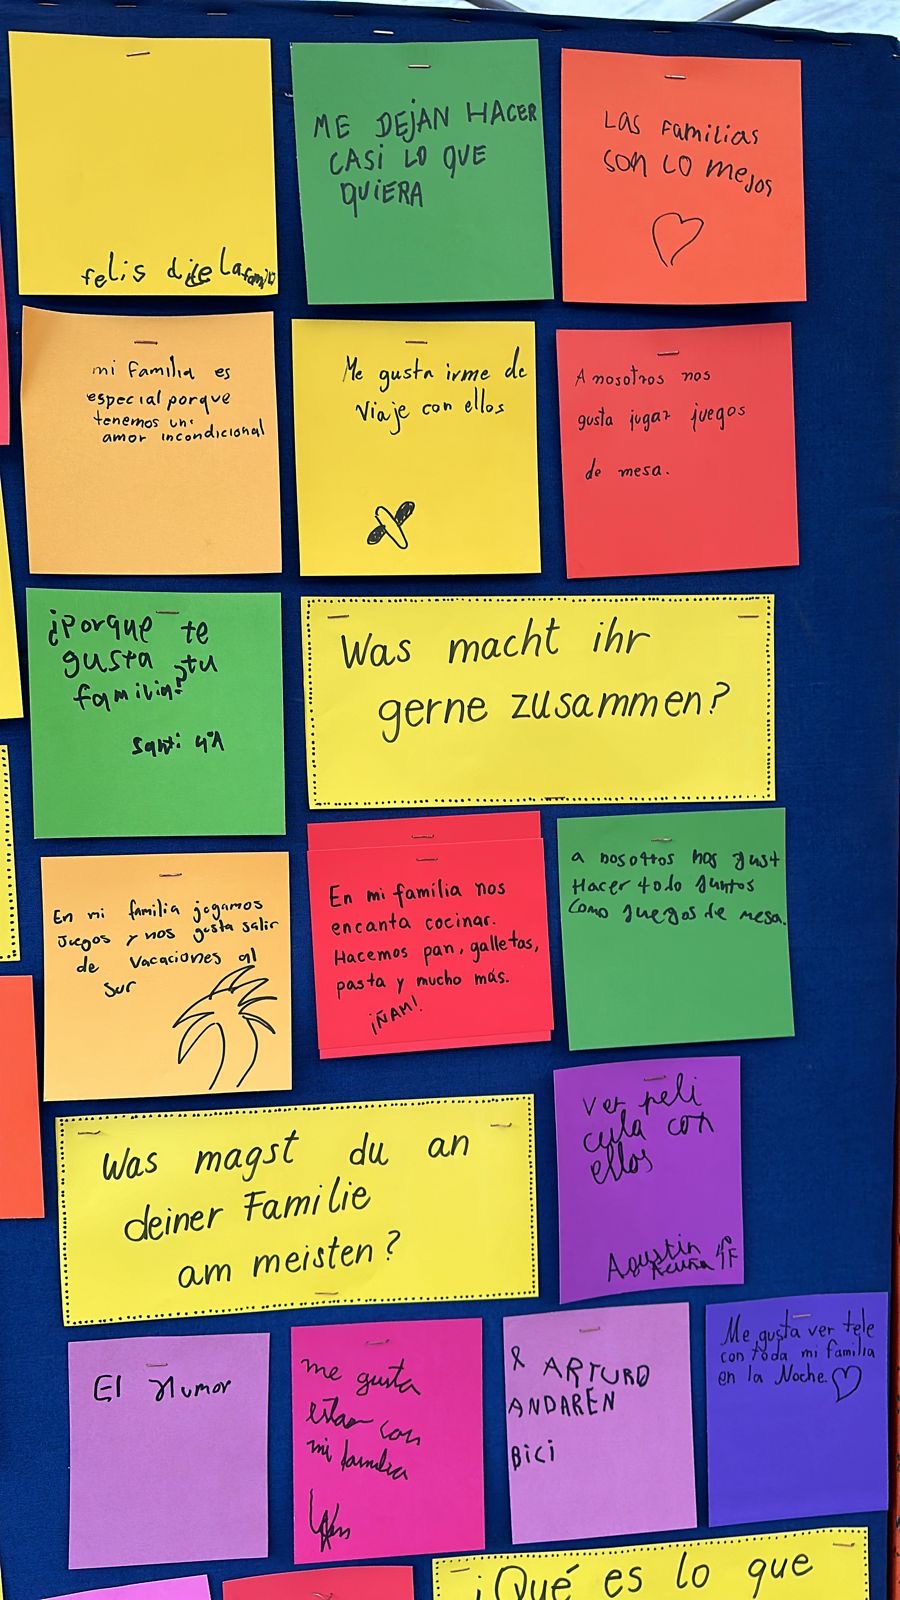 felis
La familia
ME DEJAN HACER
CASI LO QUE
QUIERA
LAS FamiLIAS
SON LO meJOS
mi familia es
especial porque
tenemos un
amor incondicional
Me gusta irme de
viaje con ellos
A nosotros nos
gusta jugar juegos
de mesa.
¿Porque te
gusta tu
familia?
Santi 4°A
Was macht ihr
gerne zusammen?
En mi familia jogamos
Juegos y nos gusta salir
de vacaciones al
Sur
En mi familia nos
encanta cocinar.
Hacemos pan, galletas,
pasta y mucho más.
¡ÑAM!
a nosottos nos gust
Hacer todo juntos
Como juegos de mesa.
Was magst du an
deiner Familie
am meisten?
Ver peli
cula con
ellos
Agustin
Acuña 4°F
El Humor
me gusta
estar con
mi familia
ARTURO
ANDAREN
BiCi
Me gusta ver tele
con toda mi familia
en la Noche.
¿Qué es lo que